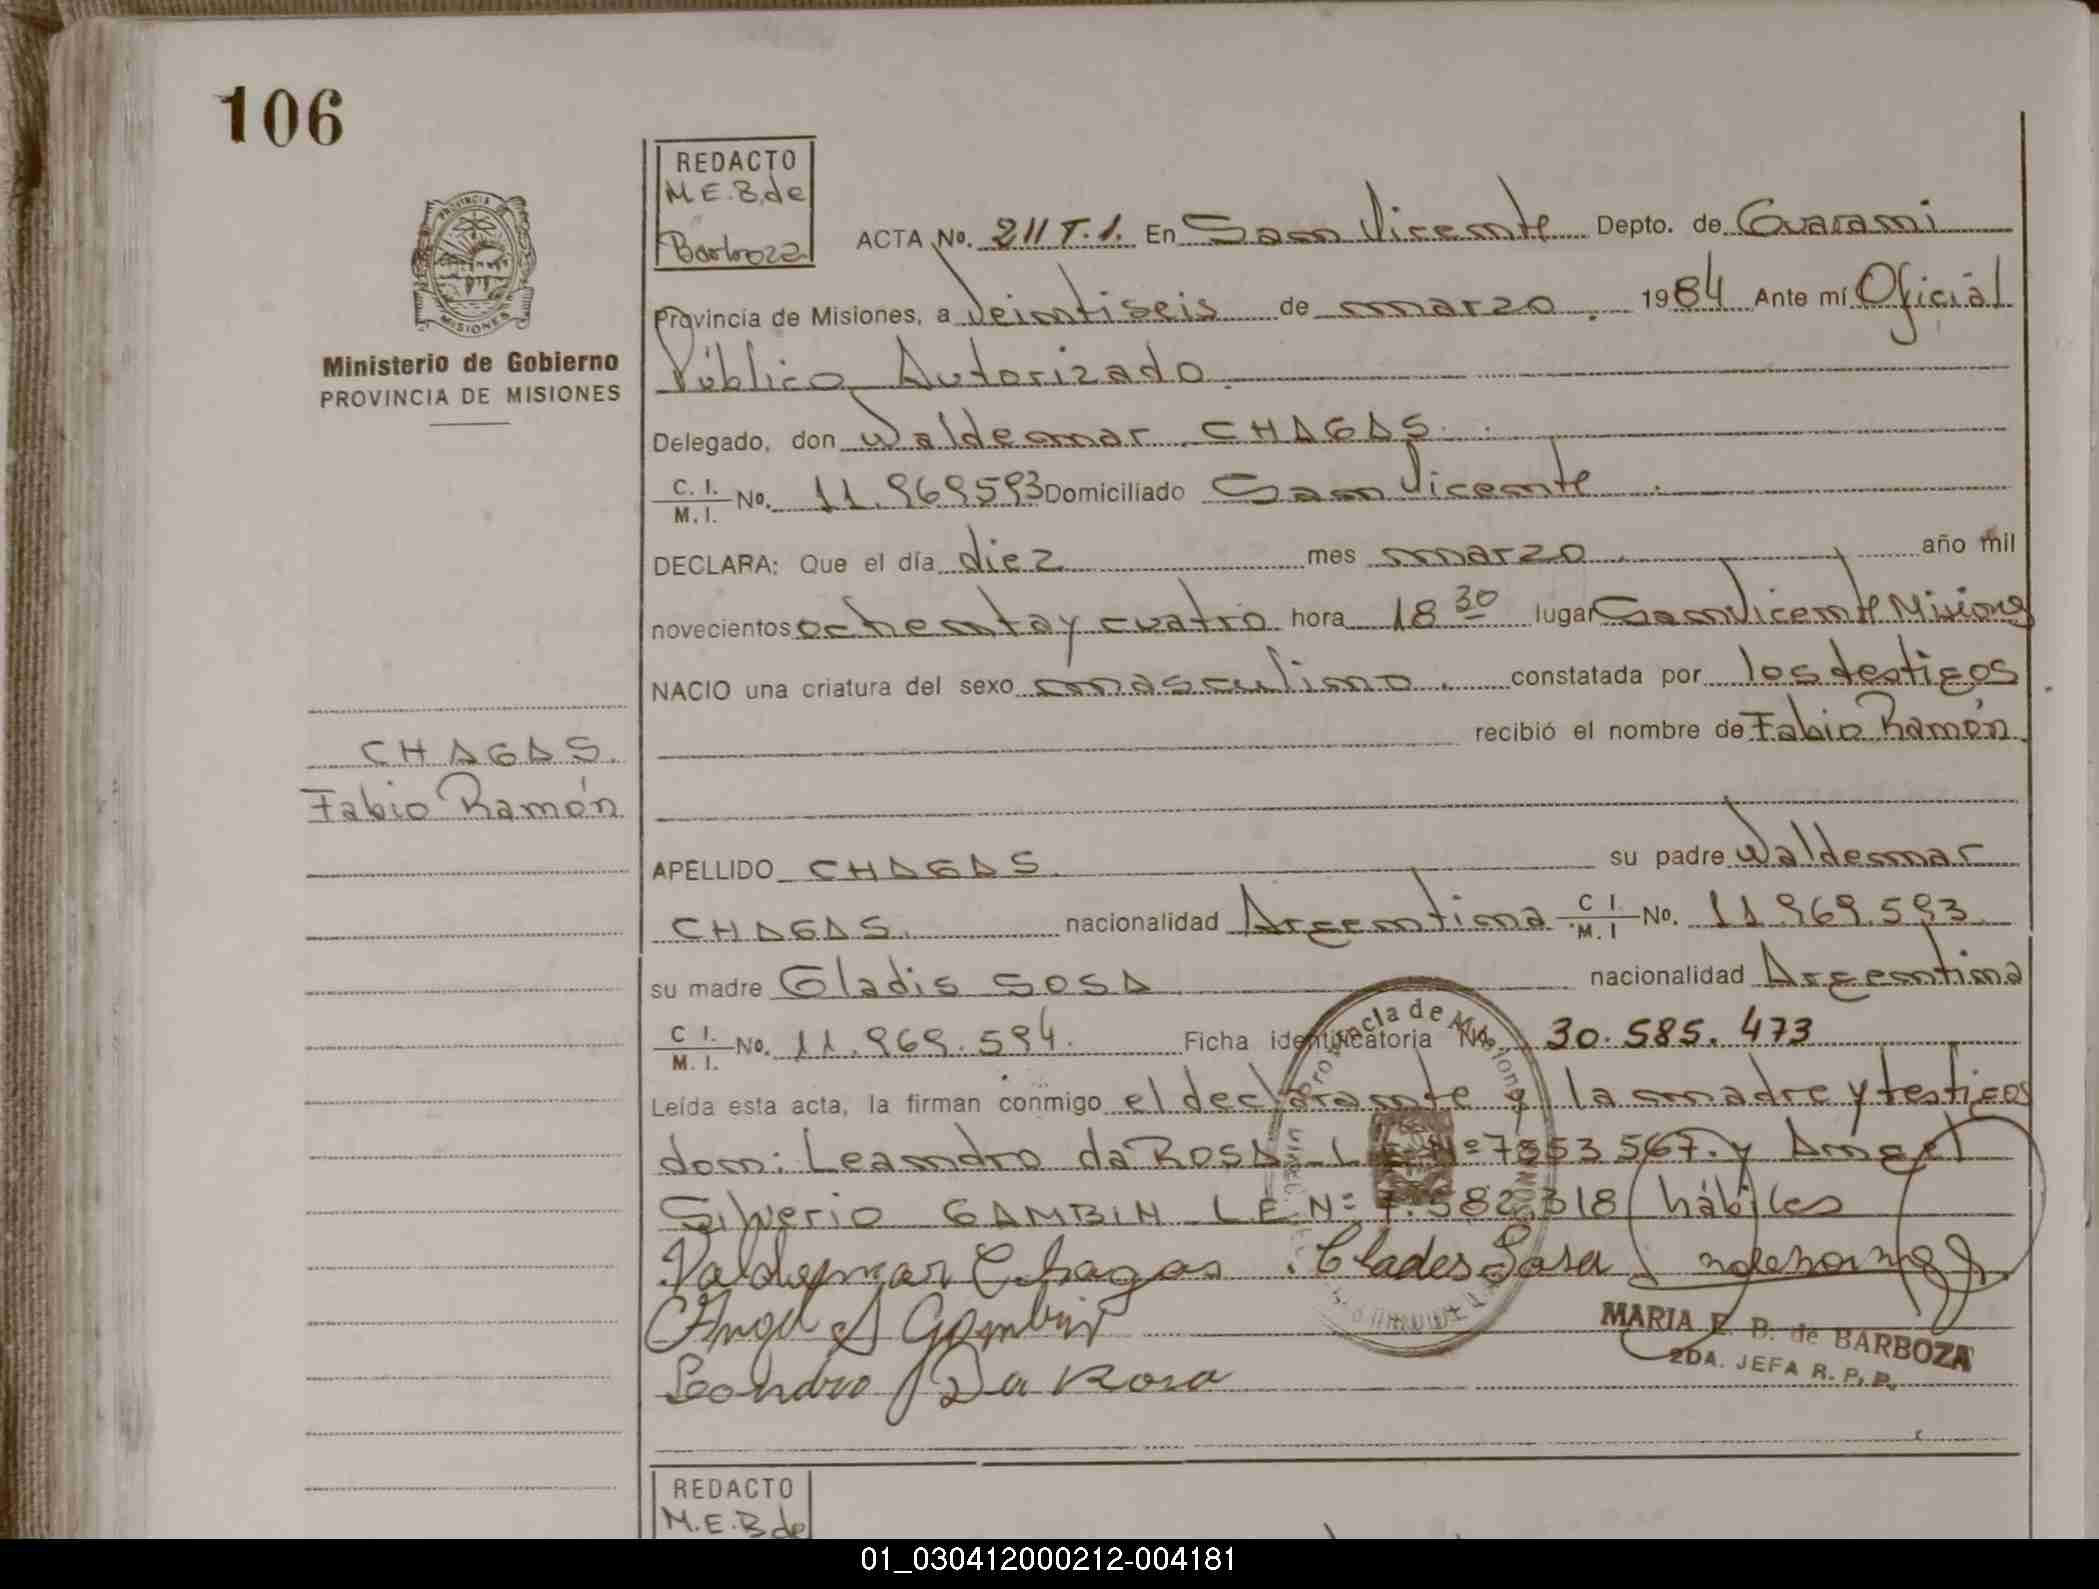 106
REDACTO
M.E.B. de
Barboza
ACTA No. 211 T.1. En San Vicente Depto. de Guarani
Provincia de Misiones, a veintiseis de marzo. 1984 Ante mí Oficial
Público Autorizado.
Ministerio de Gobierno
PROVINCIA DE MISIONES
Delegado, don Waldemar CHAGAS.
C. I. M. I. No. 11.969593 Domiciliado San Vicente.
DECLARA: Que el día diez mes marzo. año mil
novecientos ochenta y cuatro hora 18 30 lugar San Vicente Misiones
NACIO una criatura del sexo masculino. constatada por los testigos
recibió el nombre de Fabio Ramón.
CHAGAS.
Fabio Ramón
APELLIDO CHAGAS. su padre Waldemar
CHAGAS. nacionalidad Argentina C I. M. I No. 11.969.593
su madre Gladis SOSA nacionalidad Argentina
C I. M. I. No. 11.969.594. Ficha identificatoria No. 30.585.473
Leída esta acta, la firman conmigo el declarante y la madre y testigos
don: Leandro da ROSA L.E. Nº 7553567. y Angel
Silverio GAMBIN L.E. Nº 7.582.318 hábiles
Valdemar Chagas Clades Sosa
Angel S Gambin
Leandro Da Rosa
Provincia de Misiones
MARIA E. B. de BARBOZA
2DA. JEFA R. P. P.
REDACTO
M.E.B de
01_030412000212-004181